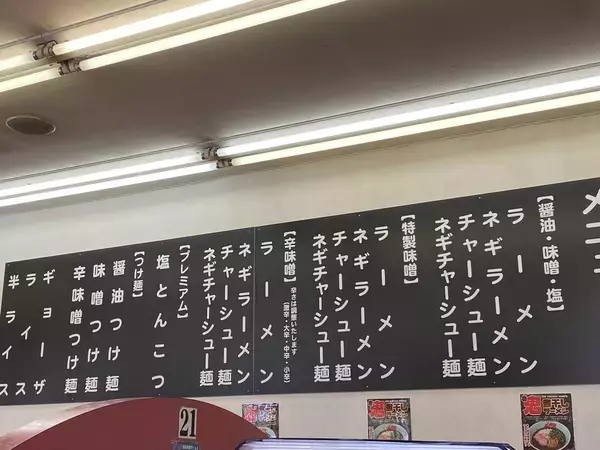 メニュー
【醤油・味噌・塩】
ラーメン
ネギラーメン
チャーシュー麺
ネギチャーシュー麺
【特製味噌】
ラーメン
ネギラーメン
チャーシュー麺
ネギチャーシュー麺
【辛味噌】辛さは調整いたします
(激辛・大辛・中辛・小辛)
ラーメン
ネギラーメン
チャーシュー麺
ネギチャーシュー麺
【プレミアム】
塩とんこつ
【つけ麺】
醤油つけ麺
味噌つけ麺
辛味噌つけ麺
ギョーザ
ライス
半ライス
21
鬼煮干し
ラーメン